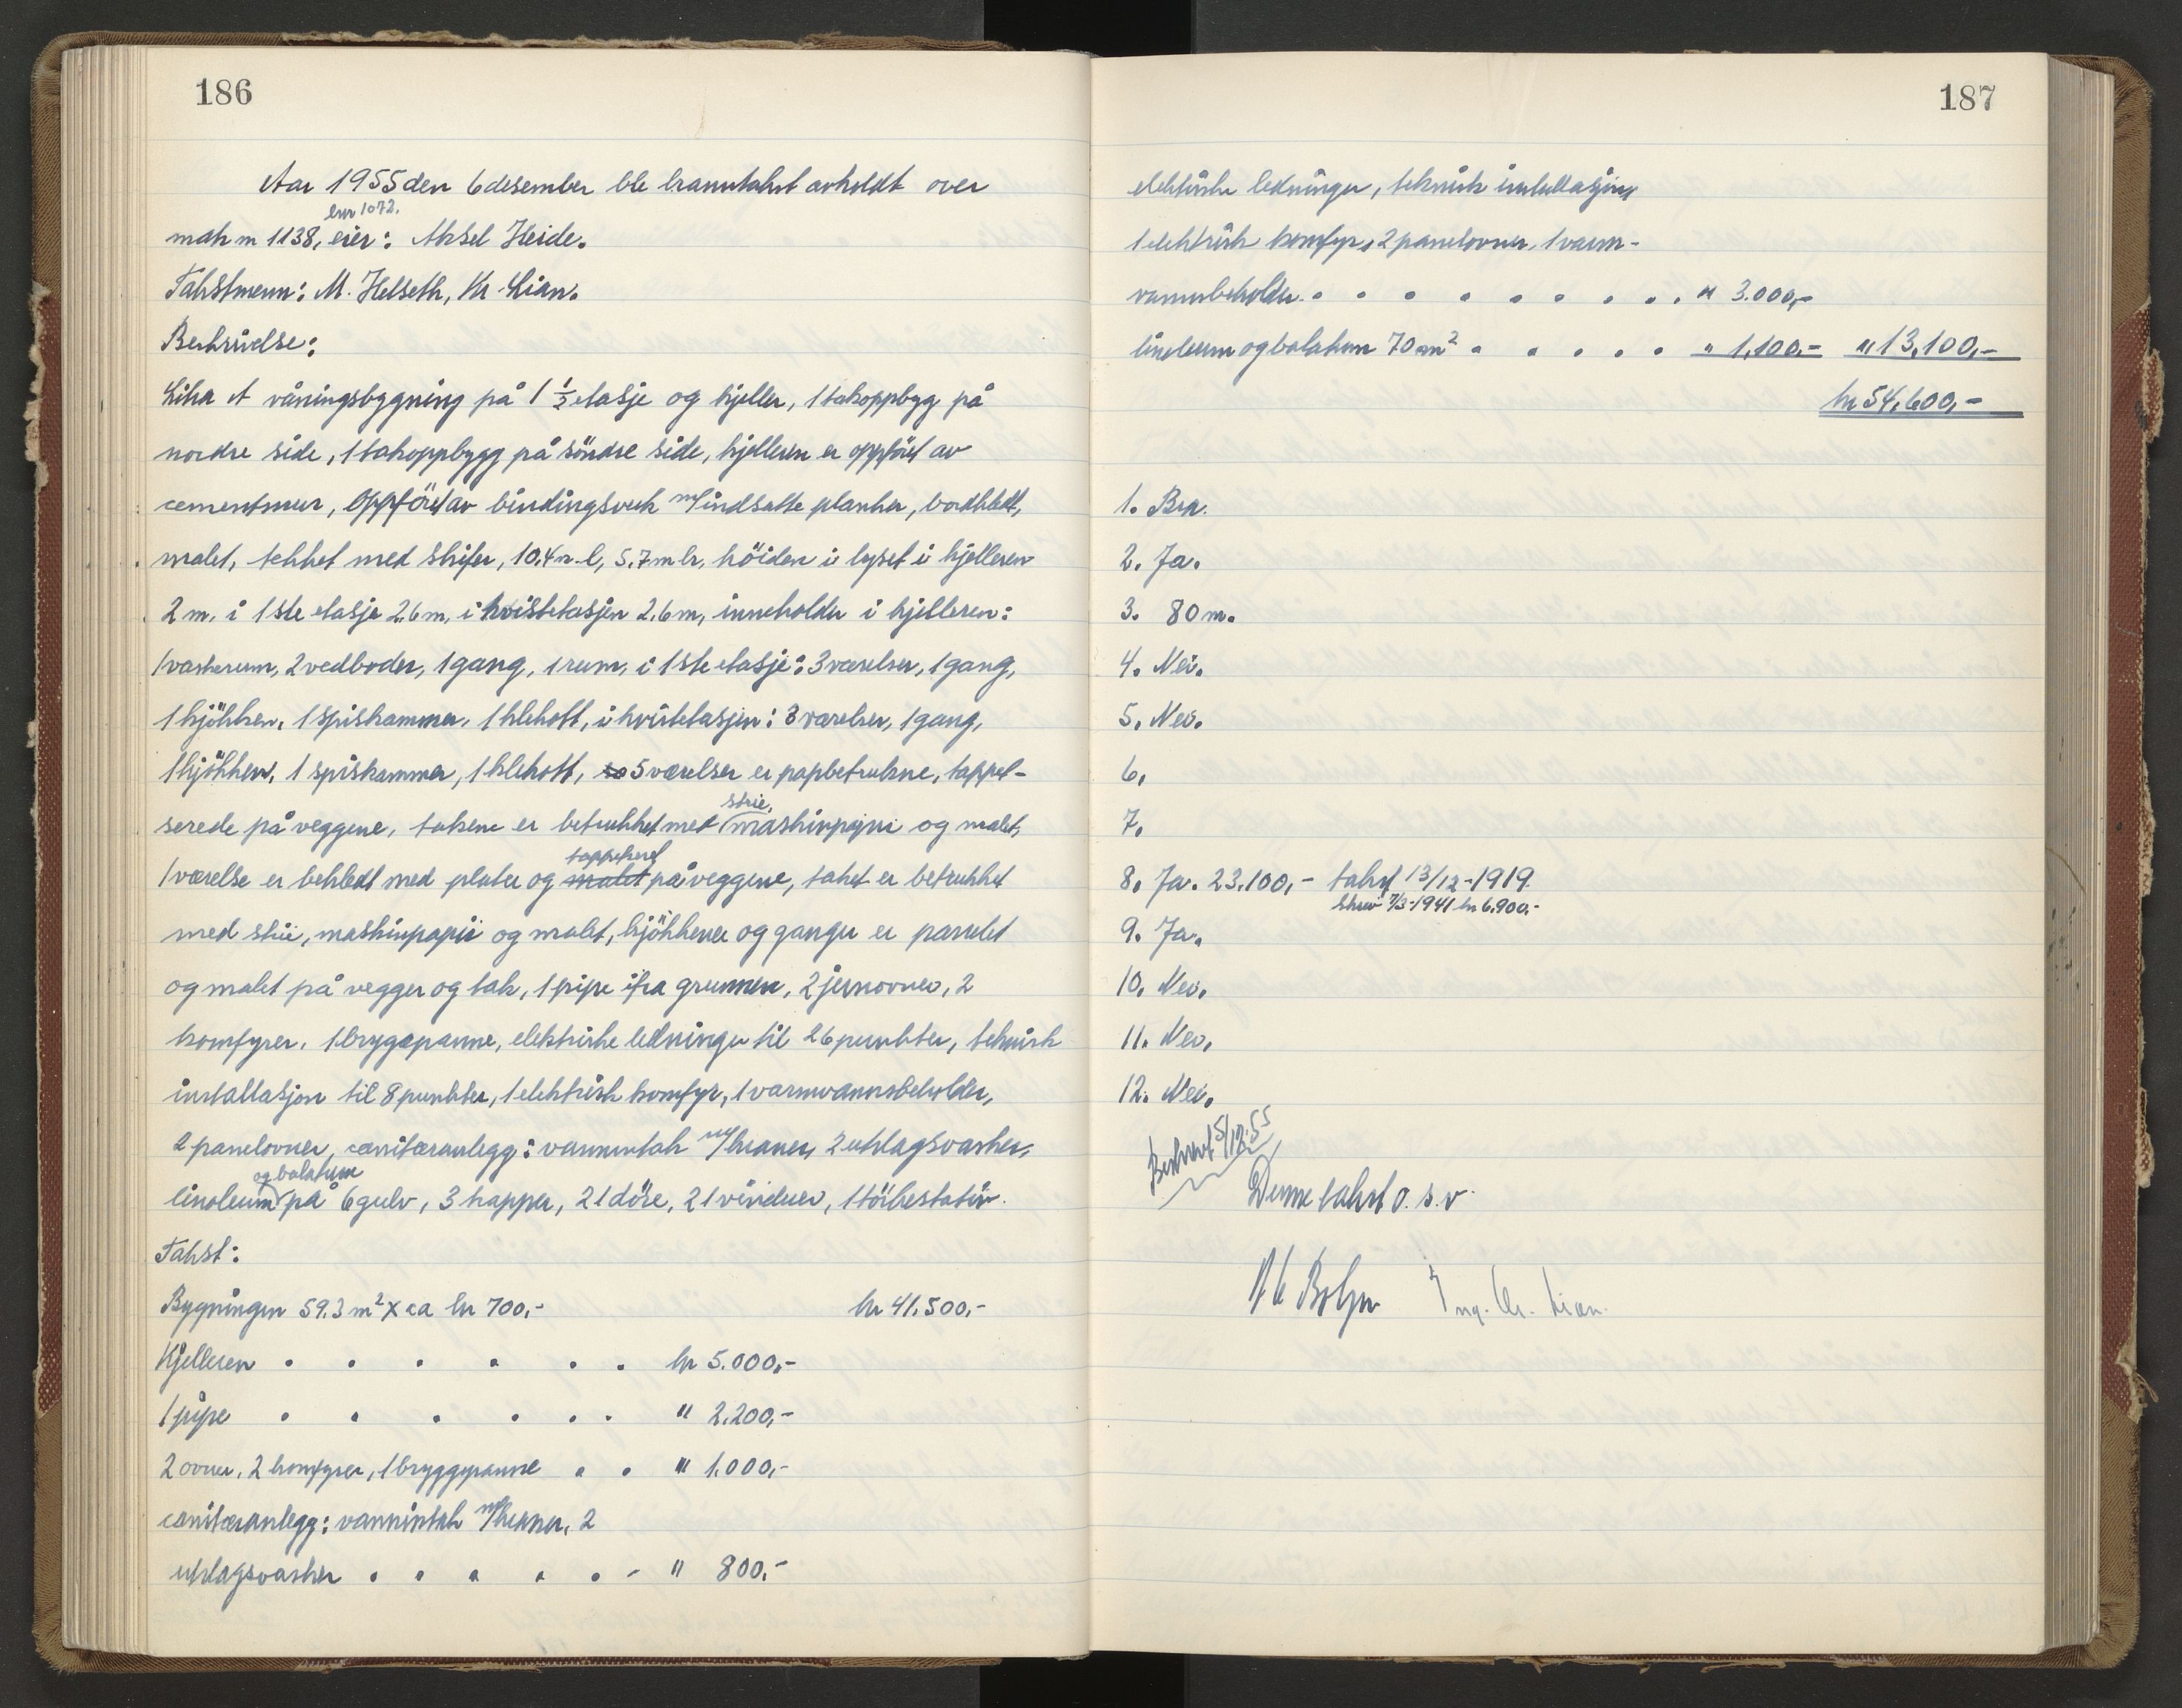 186
Aar 1955 den 6 desember ble branntakst avholdt over
lnr 1072.
matr nr 1138, eier: Aksel Heide.
Takstmenn: M. Helseth, Kr. Lian.
Beskrivelse:
Litra A våningsbygning på 1 1/2 etasje og kjeller, 1 takoppbygg på
nordre side, 1 takoppbygg på söndre side, kjelleren er oppfört av
cementmur, Oppfört av bindingsverk m/indsatte planker, bordkledt,
malet, tekket med skifer, 10.4 m l, 5.7 m br, höiden i lyset i kjelleren
2 m, i 1ste etasje 2,6 m, i kvistetasjen 2,6 m, inneholder i kjelleren:
1 vaskerum, 2 vedboder, 1 gang, 1 rum, i 1ste etasje: 3 værelser, 1 gang,
1 kjökken, 1 spiskammer, 1 klekott, i kvistetasjen: 3 værelser, 1 gang,
1 kjökken, 1 spiskammer, 1 klekott, 5 værelser er papbetrukne, tappet-
serede på veggene, takene er betrukket med strie, maskinpapir og malet,
1 værelse er bekledt med plater og malet tappetseret på veggene, taket er betrukket
med strie, maskinpapir og malet, kjökkener og ganger er panelet
og malet på vegger og tak, 1 pipe ifra grunnen, 2 jernovner, 2
komfyrer, 1 bryggepanne, elektriske ledninger til 26 punkter, teknisk
installasjon til 8 punkter, 1 elektrisk komfyr, 1 varmvannsbeholder,
2 panelovner, sanitæranlegg: vanninntak m/kraner, 2 utslagsvasker,
linoleum og balatum på 6 gulv, 3 trapper, 21 döre, 21 vinduer, 1 törkestativ.
Takst:
Bygningen 59.3 m² x ca kr 700,- kr 41.500,-
Kjelleren . . . . . . kr 5.000,-
1 pipe . . . . . . " 2.200,-
2 ovner, 2 komfyrer, 1 bryggepanne . . " 1.000,-
sanitæranlegg: vanninntak m/kraner, 2
utslagsvasker . . . . . - " 800,-
187
elektriske ledninger, teknisk installasjon,
1 elektrisk komfyr, 2 panelovner, 1 varm-
vannsbeholder . . . . . . . . . " 3.000,-
linoleum og balatum 70 m² . . . . . " 1,100.- " 13,100,-
kr 54,600,-
1. Bra.
2. Ja.
3. 80 m.
4. Nei.
5. Nei.
6.
7.
8. Ja. 23.100,- takst 13/12-1919.
Skur 7/3-1941 kr 6.900,-
9. Ja.
10. Nei.
11. Nei.
12. Nei.
Beskrevet 5/12.55
Denne takst o.s.v.
Ing. Kr. Lian.